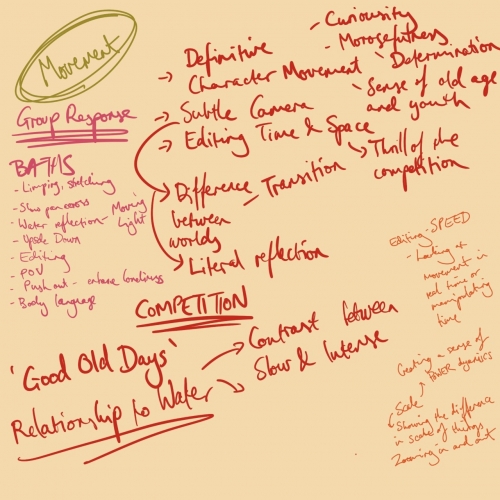 Movement
Group Response
BATHS
- Limping, stretching
- Slow pan across
- Water reflection - Moving Light
- Upside Down
- Editing
- POV
- Push out - enhance loneliness
- Body language
→ Definitive
Character Movement
- Curiousity
- Morosefulness
- Determination
- Sense of old age
and youth
→ Subtle Camera
→ Editing Time & Space
→ Thrill of the
competition
→ Difference - Transition
between
worlds
→ Literal reflection
COMPETITION
'Good Old Days'
Relationship to Water
→ Contrast between
Slow & Intense
Editing - SPEED
- Looking at
movement in
real time or
manipulating
time
Creating a sense of
POWER dynamics
Scale
Showing the difference
in scale of things
Zooming in and out